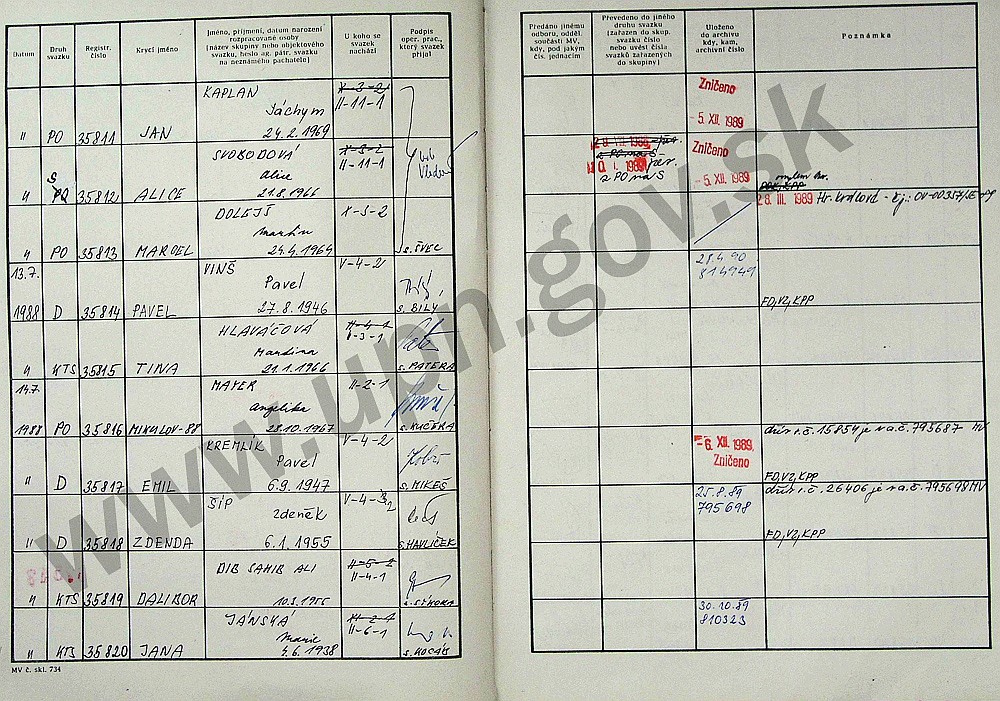 Datum
Druh svazku
Registr. číslo
Krycí jméno
Jméno, příjmení, datum narození
rozpracované osoby
(název skupiny nebo objektového
svazku, heslo ag. pátr. svazku
na neznámého pachatele)
U koho se
svazek
nachází
Podpis
oper. prac.,
který svazek
přijal
Předáno jinému
odboru, odděl.
součásti MV,
kdy, pod jakým
čís. jednacím
Převedeno do jiného
druhu svazku
(zařazen do skup.
svazku číslo
nebo uvést čísla
svazků zařazených
do skupiny)
Uloženo
do archivu
kdy, kam,
archivní číslo
Poznámka
KAPLAN X-3-2
Jáchym II-11-1
" PO 35811 JAN 24.2.1969
Zničeno
- 5. XII. 1989
SVOBODOVÁ X-3-2
S Alice II-11-1
" PO 35812 ALICE 21.8.1966
z PO na S
z PO na S
Zničeno
- 5. XII. 1989
DOLEJŠ X-3-2
Martin
" PO 35813 MARCEL 24.4.1964 s. ŠVEC
28. III. 1989 Hr. Králové
13.7. VINŠ V-4-2
Pavel
1988 D 35814 PAVEL 27.8.1946 s. BILÝ
28.4.90
814949
FD, VZ, KPP
HLAVÁČOVÁ
Martina II-3-1
" KTS 35815 TINA 21.1.1966 s. PATERA
14.7. MAYER II-2-1
Angelika
1988 PO 35816 MIKULOV-88 28.10.1967 s. KUČERA
KREMLÍK V-4-2
Pavel
" D 35817 EMIL 6.9.1947 s. MIKEŠ
- 6. XII. 1989
Zničeno
dřív. r.č. 15854 je v a.č. 795687 MV
FD, VZ, KPP
ŠÍP V-4-2
Zdeněk
" D 35818 ZDENDA 6.1.1955 s. HAVLÍČEK
25.8.89
795698
dřív. r.č. 26406 je v a.č. 795698 MV
FD, VZ, KPP
DIB SAHIB ALI II-5-2
II-4-1
" KTS 35819 DALIBOR s. SÝKORA
JÁNSKÁ
Marie II-6-1
" KTS 35820 JANA 4.6.1938 s. KOCÁB
30.10.89
810323
MV č. skl. 734
www.upn.gov.sk